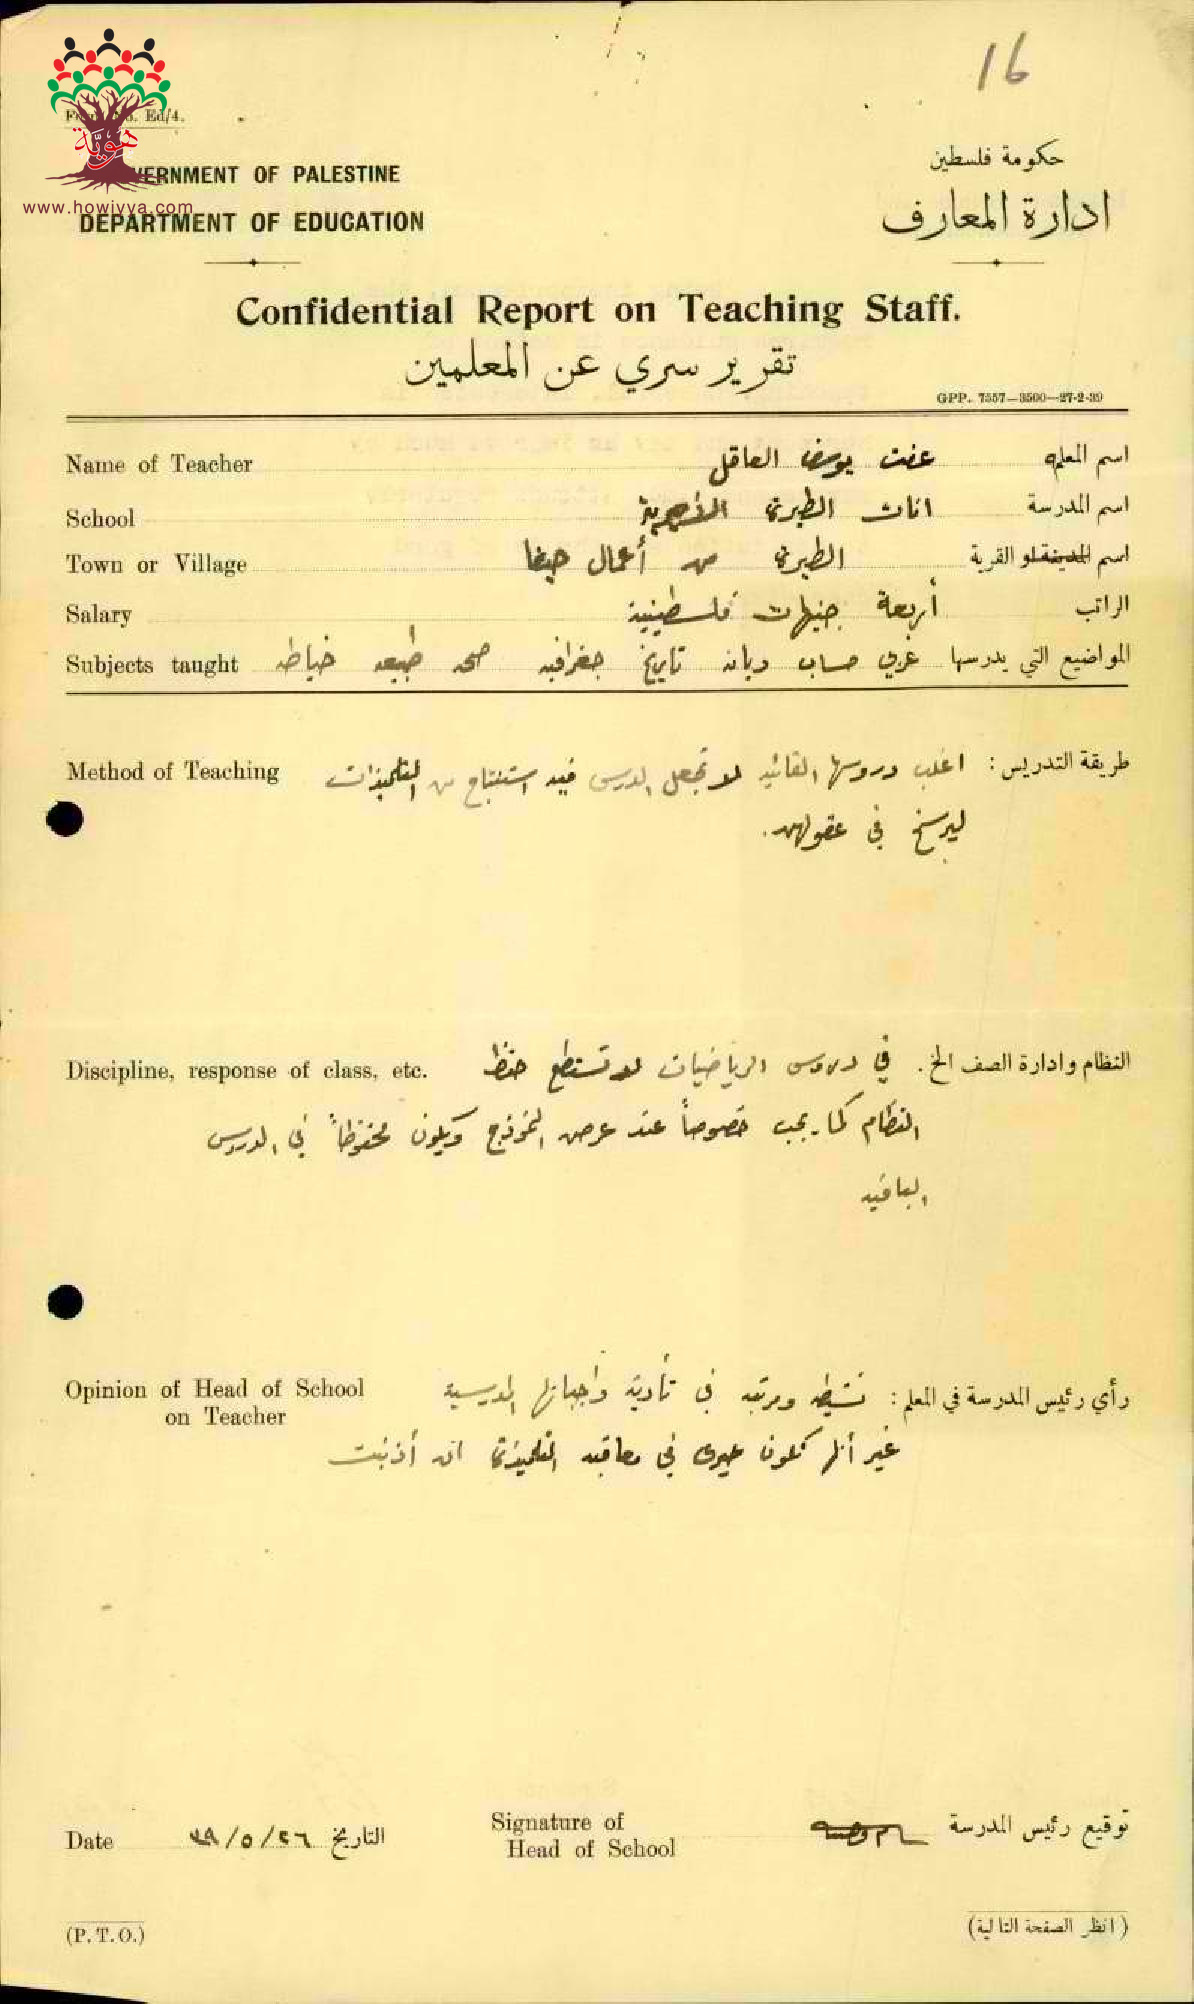 16
هويّة
www.howiyya.com
Ed/4.
GOVERNMENT OF PALESTINE
حكومة فلسطين
DEPARTMENT OF EDUCATION
ادارة المعارف
Confidential Report on Teaching Staff.
تقرير سري عن المعلمين
GPP. 7557—3500—27-2-39
Name of Teacher عفت يوسف العاقل اسم المعلم
School اناث الطيرة الأميرية اسم المدرسة
Town or Village الطيرة من أعمال حيفا اسم المدينة او القرية
Salary أربعة جنيهات فلسطينية الراتب
Subjects taught المواضيع التي يدرسها عربي حساب ديانه تاريخ جغرافيه صحه طبيعه خياطه
Method of Teaching طريقة التدريس : اغلب دروسها القائيه لا تجعل الدرس فيه استنتاج من التلميذات
ليرسخ في عقولهن.
Discipline, response of class, etc. النظام وادارة الصف الخ. في دروس الرياضيات لا تستطع حفظ
النظام كما يجب خصوصاً عند عرض النموذج ويكون محفوظاً في الدروس
الباقيه
Opinion of Head of School رأي رئيس المدرسة في المعلم : نشيطه ومرتبه في تأدية واجباتها المدرسية
on Teacher
غير أنها تكون حيرى في معاقبه التلميذة ان أذنبت
Date ٣٩/٥/٢٦ التاريخ
Signature of
Head of School
توقيع رئيس المدرسة
(P. T. O.)
(انظر الصفحة التالية)